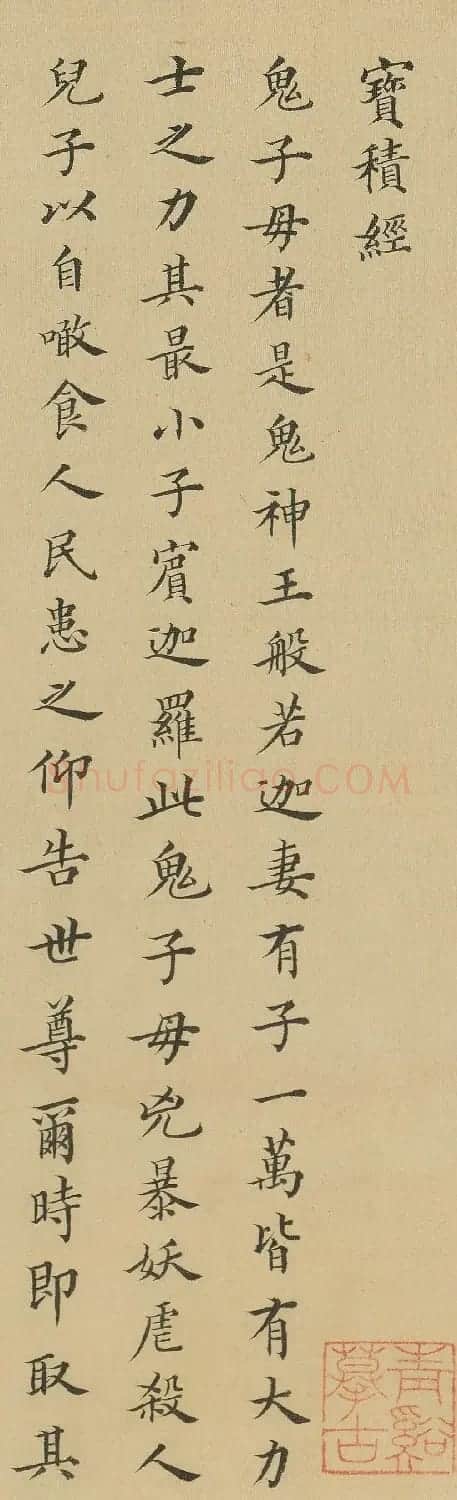 寶積經
鬼子母者是鬼神王般若迦妻有子一萬皆有大力
士之力其最小子賓迦羅此鬼子母兇暴妖虐殺人
兒子以自噉食人民患之仰告世尊爾時即取其
青谿
摹古
shufaziliao.COM